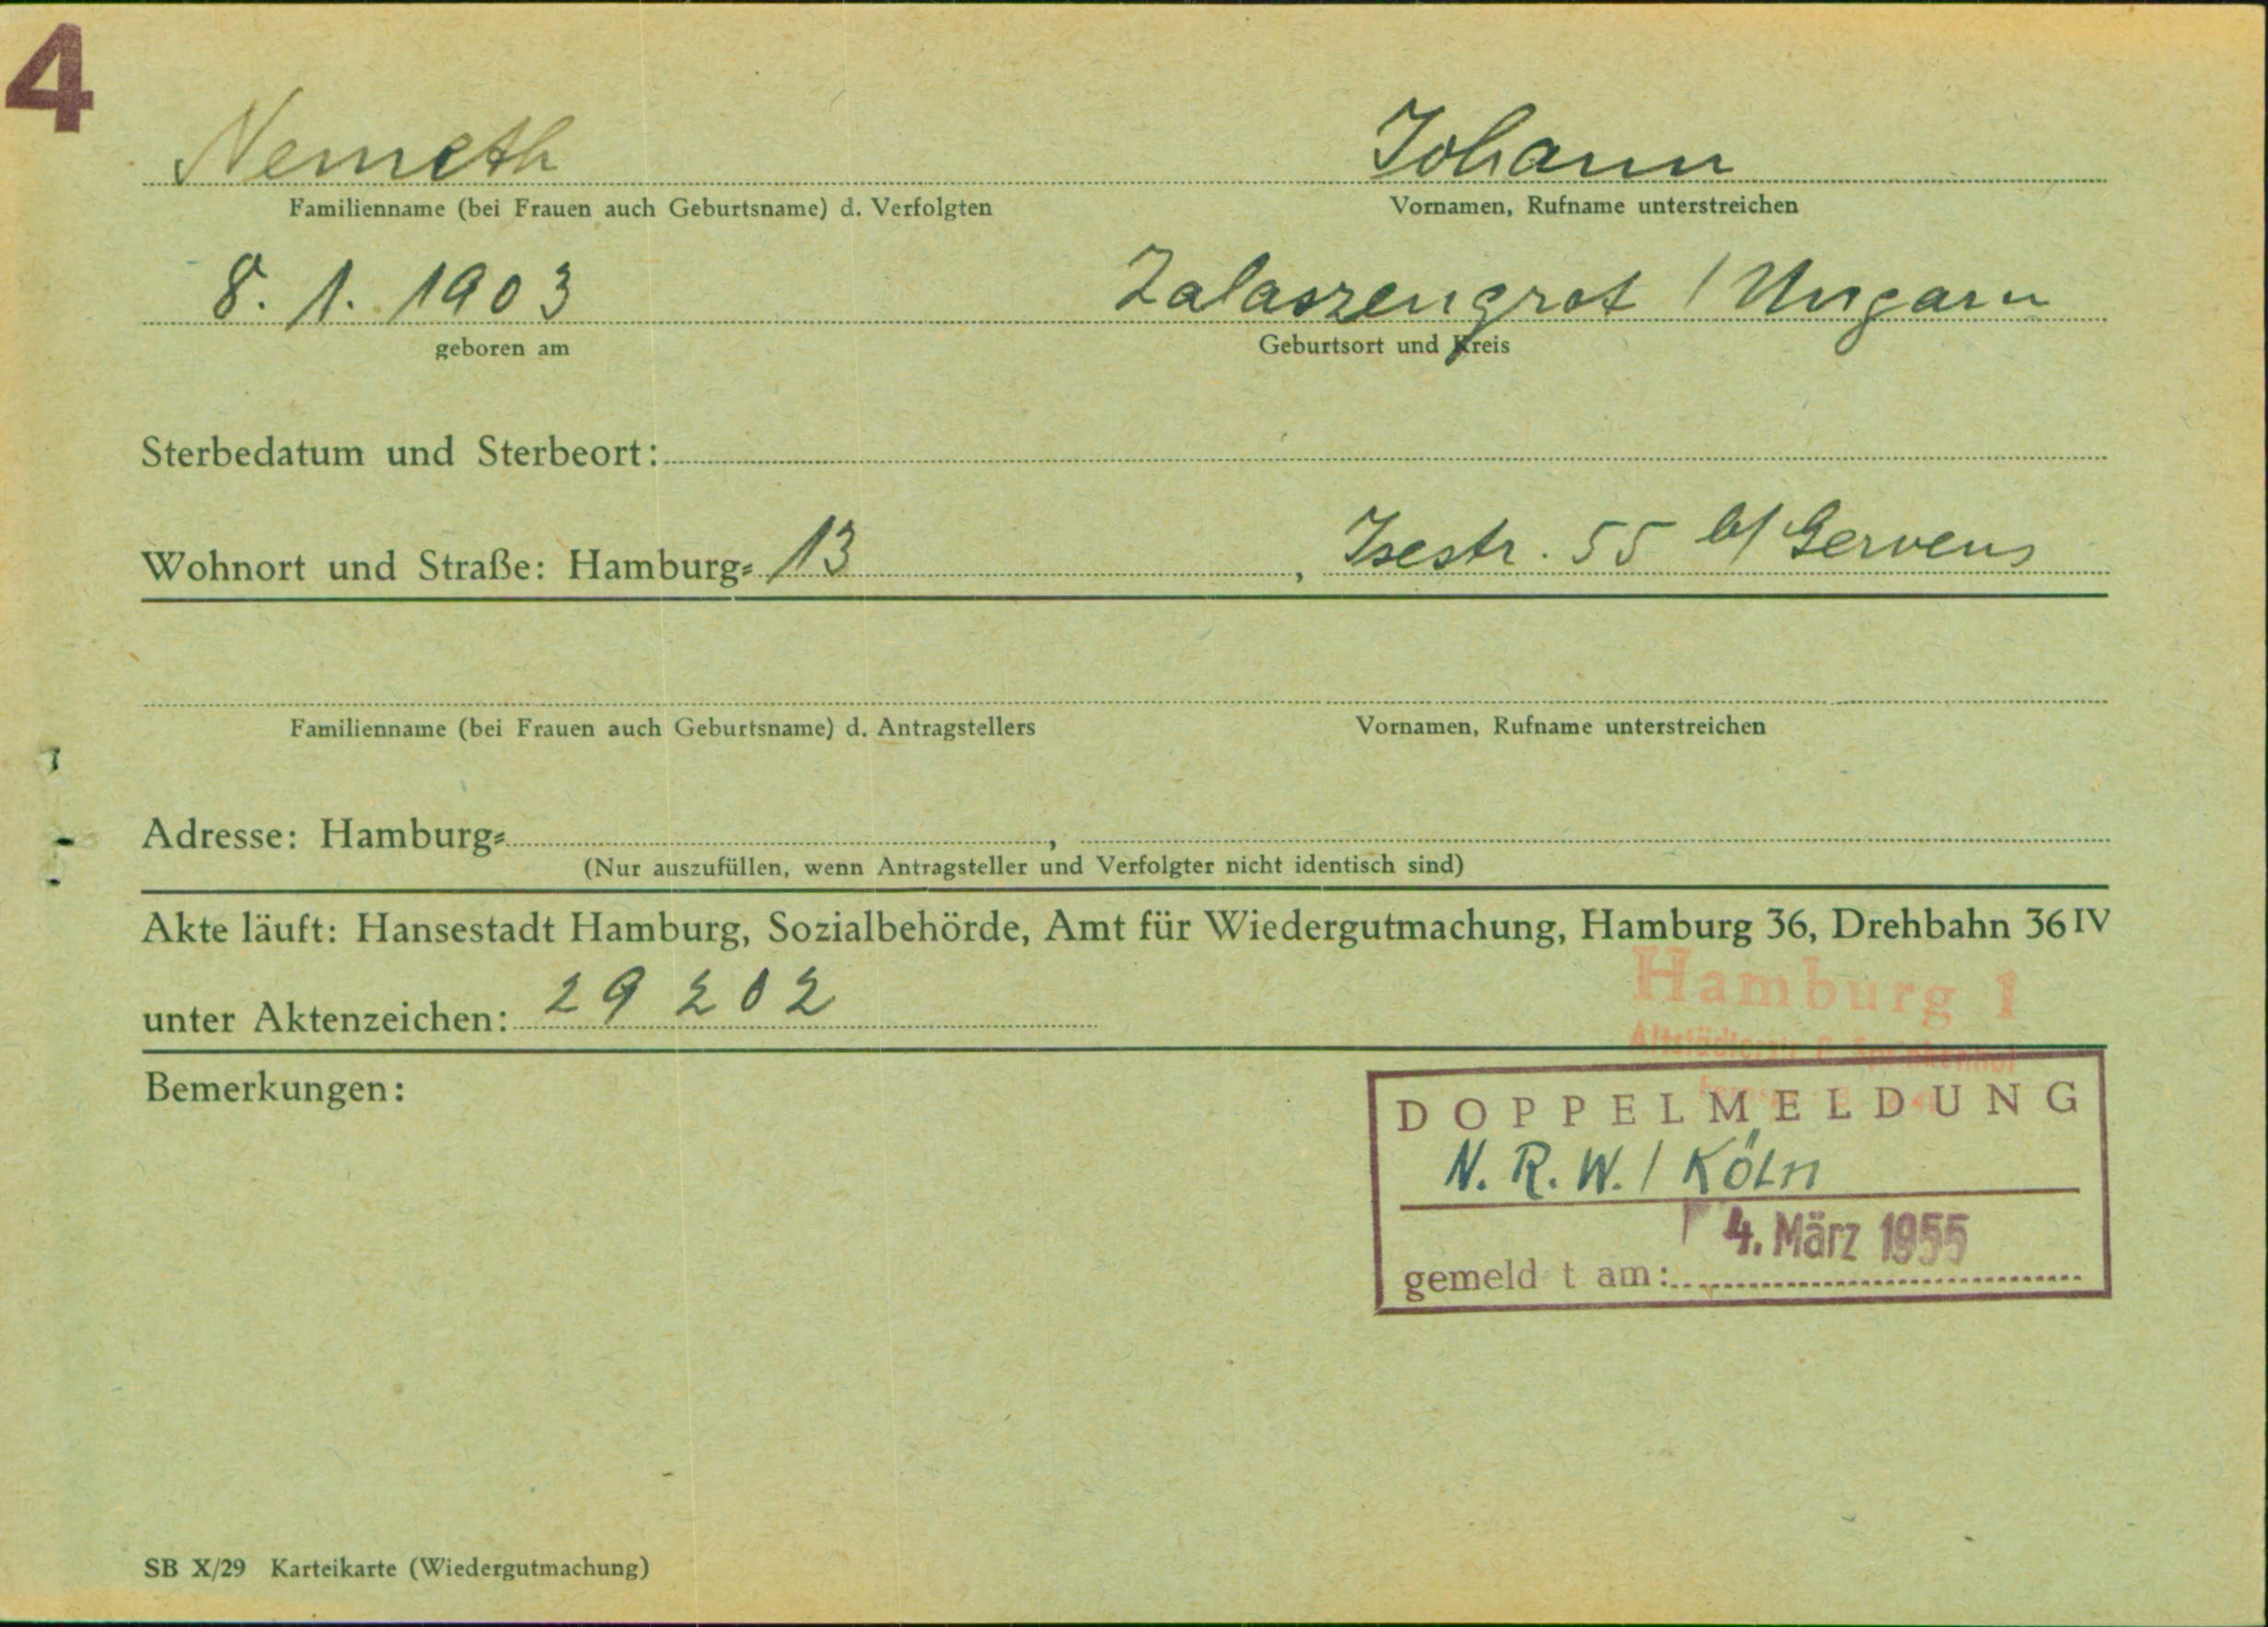 4
Nemeth Johann
Familienname (bei Frauen auch Geburtsname) d. Verfolgten Vornamen, Rufname unterstreichen
8. 1. 1903 Zalaszengrot / Ungarn
geboren am Geburtsort und Kreis
Sterbedatum und Sterbeort:
Wohnort und Straße: Hamburg- 13, Isestr. 55 b/ Gervens
Familienname (bei Frauen auch Geburtsname) d. Antragstellers Vornamen, Rufname unterstreichen
Adresse: Hamburg- ,
(Nur auszufüllen, wenn Antragsteller und Verfolgter nicht identisch sind)
Akte läuft: Hansestadt Hamburg, Sozialbehörde, Amt für Wiedergutmachung, Hamburg 36, Drehbahn 36 IV
unter Aktenzeichen: 29 202
Hamburg 1
Bemerkungen:
DOPPELMELDUNG
N. R. W. / Köln
4. März 1955
gemeld t am:
SB X/29 Karteikarte (Wiedergutmachung)